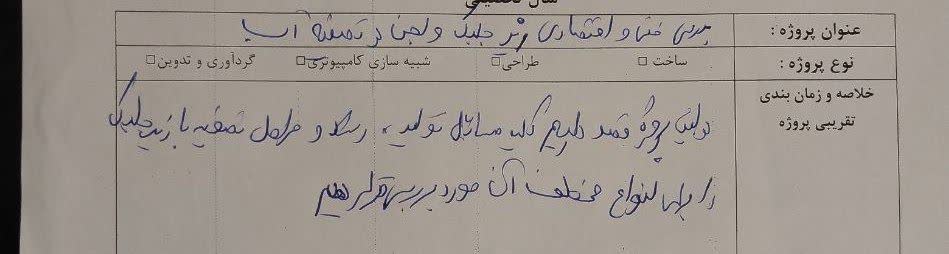 سال تحصیلی
عنوان پروژه : بررسی فنی و اقتصادی ریز جلبک و لجن در تصفیه آب
نوع پروژه : ساخت □ طراحی□ شبیه سازی کامپیوتری□ گردآوری و تدوین□
خلاصه و زمان بندی
تقریبی پروژه
در این پروژه قصد داریم کلیه مسائل تولید، رشد و مراحل تصفیه با ریز جلبک
را برای انواع مختلف آن مورد بررسی قرار دهیم